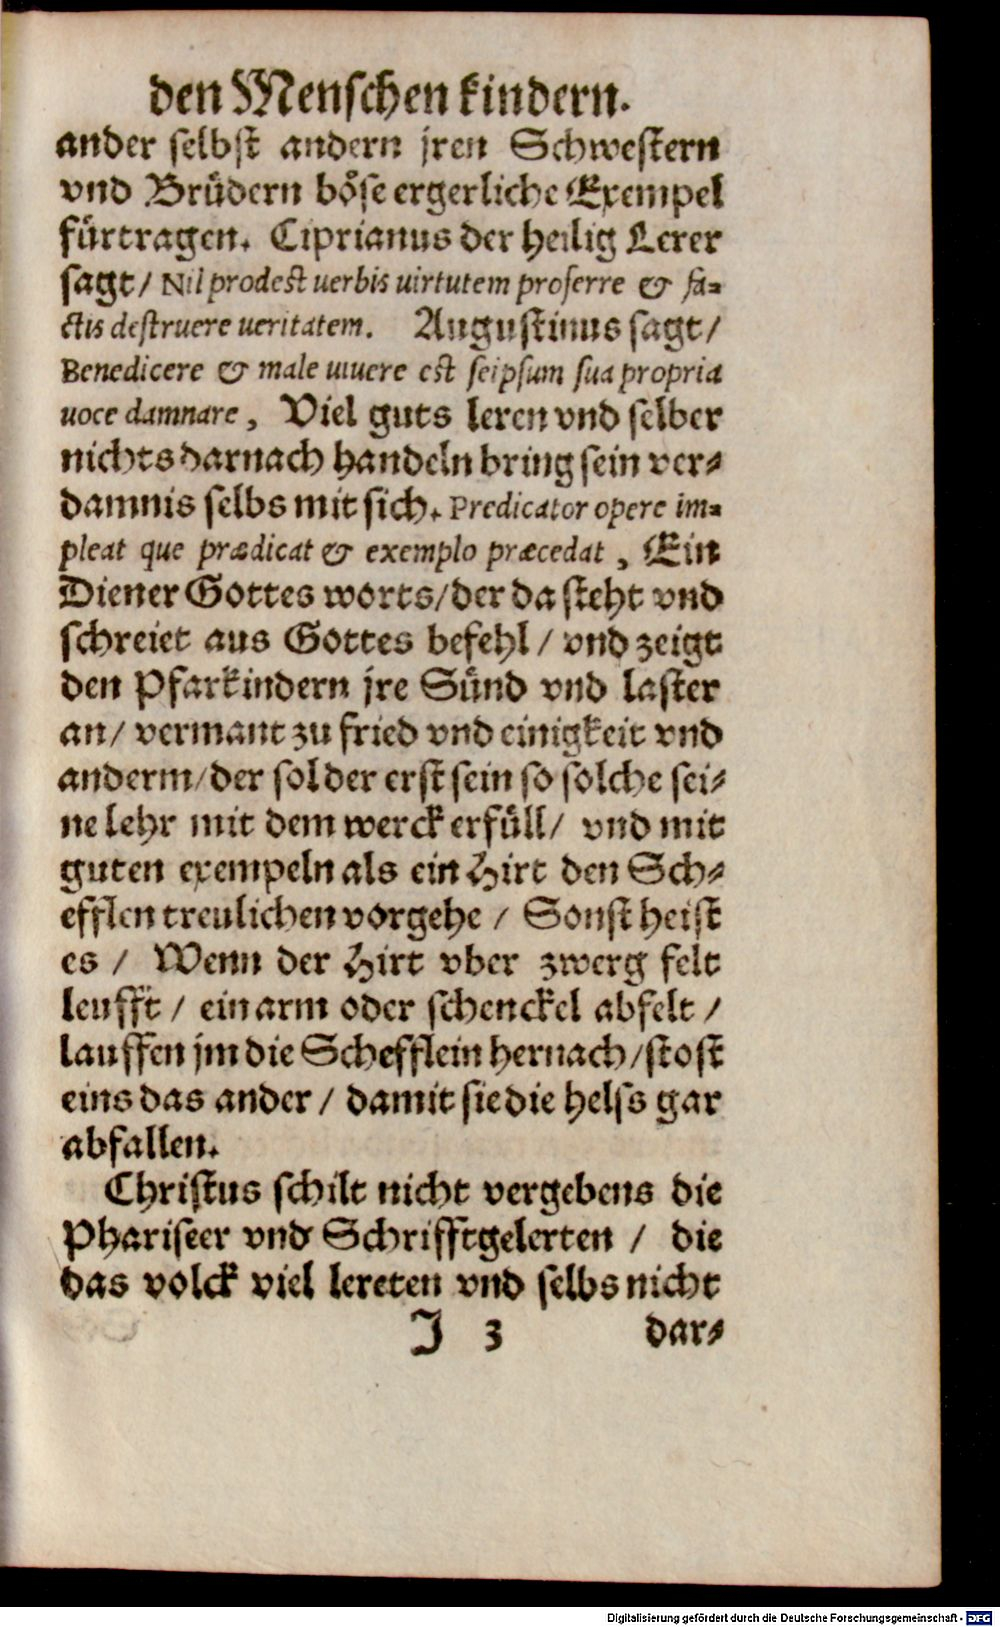 den Menschen kindern.
ander selbst andern jren Schwestern
vnd Brüdern böse ergerliche Exempel
fürtragen. Ciprianus der heilig Lerer
sagt/ Nil prodest uerbis uirtutem proferre & fa-
ctis destruere ueritatem. Augustinus sagt/
Benedicere & male uiuere est seipsum sua propria
uoce damnare, Viel guts leren vnd selber
nichts darnach handeln bring sein ver-
damnis selbs mit sich. Predicator opere im-
pleat que prædicat & exemplo præcedat, Ein
Diener Gottes worts/der da steht vnd
schreiet aus Gottes befehl/ vnd zeigt
den Pfarkindern jre Sünd vnd laster
an/ vermant zu fried vnd einigkeit vnd
anderm/der sol der erst sein so solche sei-
ne lehr mit dem werck erfüll/ vnd mit
guten exempeln als ein Hirt den Sch-
efflen treulichen vorgehe / Sonst heist
es / Wenn der Hirt vber zwerg felt
leufft / ein arm oder schenckel abfelt /
lauffen jm die Schefflein hernach/stost
eins das ander / damit sie die helss gar
abfallen.
Christus schilt nicht vergebens die
Phariseer vnd Schrifftgelerten / die
das volck viel lereten vnd selbs nicht
J 3 dar-
Digitalisierung gefördert durch die Deutsche Forschungsgemeinschaft - DFG